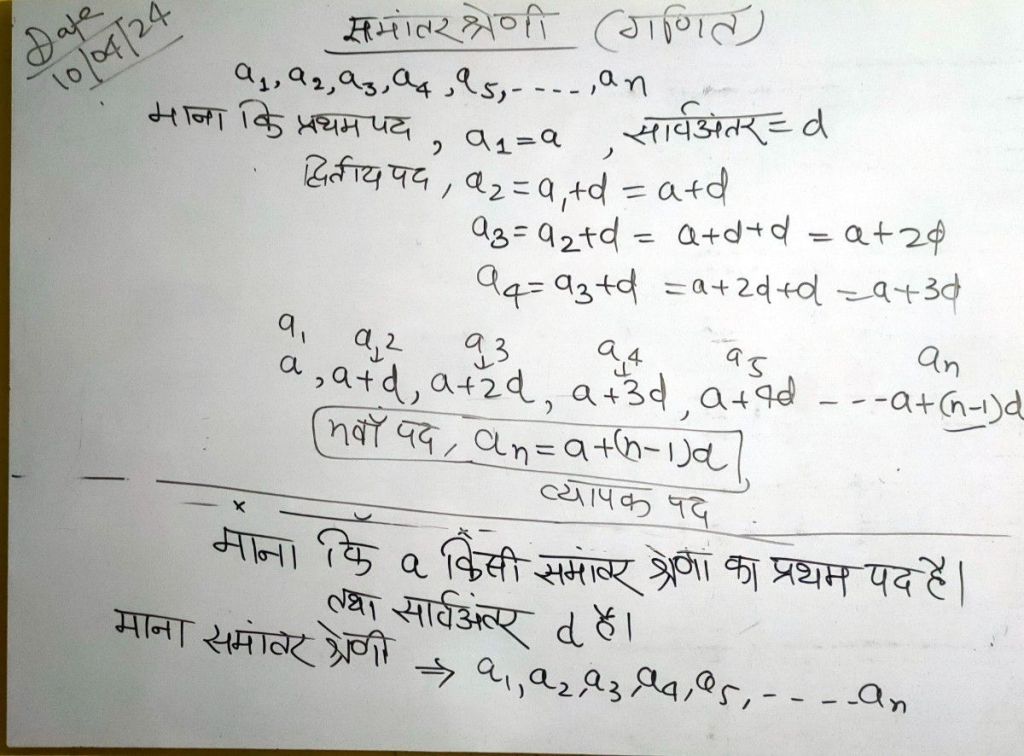 Date
10/04/24
समांतर श्रेणी (गणित)
a₁, a₂, a₃, a₄, a₅, - - - -, aₙ
माना कि प्रथम पद, a₁ = a, सार्वअंतर = d
द्वितीय पद, a₂ = a₁+d = a+d
a₃ = a₂+d = a+d+d = a+2d
a₄ = a₃+d = a+2d+d = a+3d
a₁ a₂ a₃ a₄ a₅ aₙ
a, a+d, a+2d, a+3d, a+4d - - - a+(n-1)d
nवाँ पद, aₙ = a+(n-1)d
व्यापक पद
माना कि a किसी समांतर श्रेणी का प्रथम पद है।
तथा सार्वअंतर d है।
माना समांतर श्रेणी ⇒ a₁, a₂, a₃, a₄, a₅, - - - - aₙ